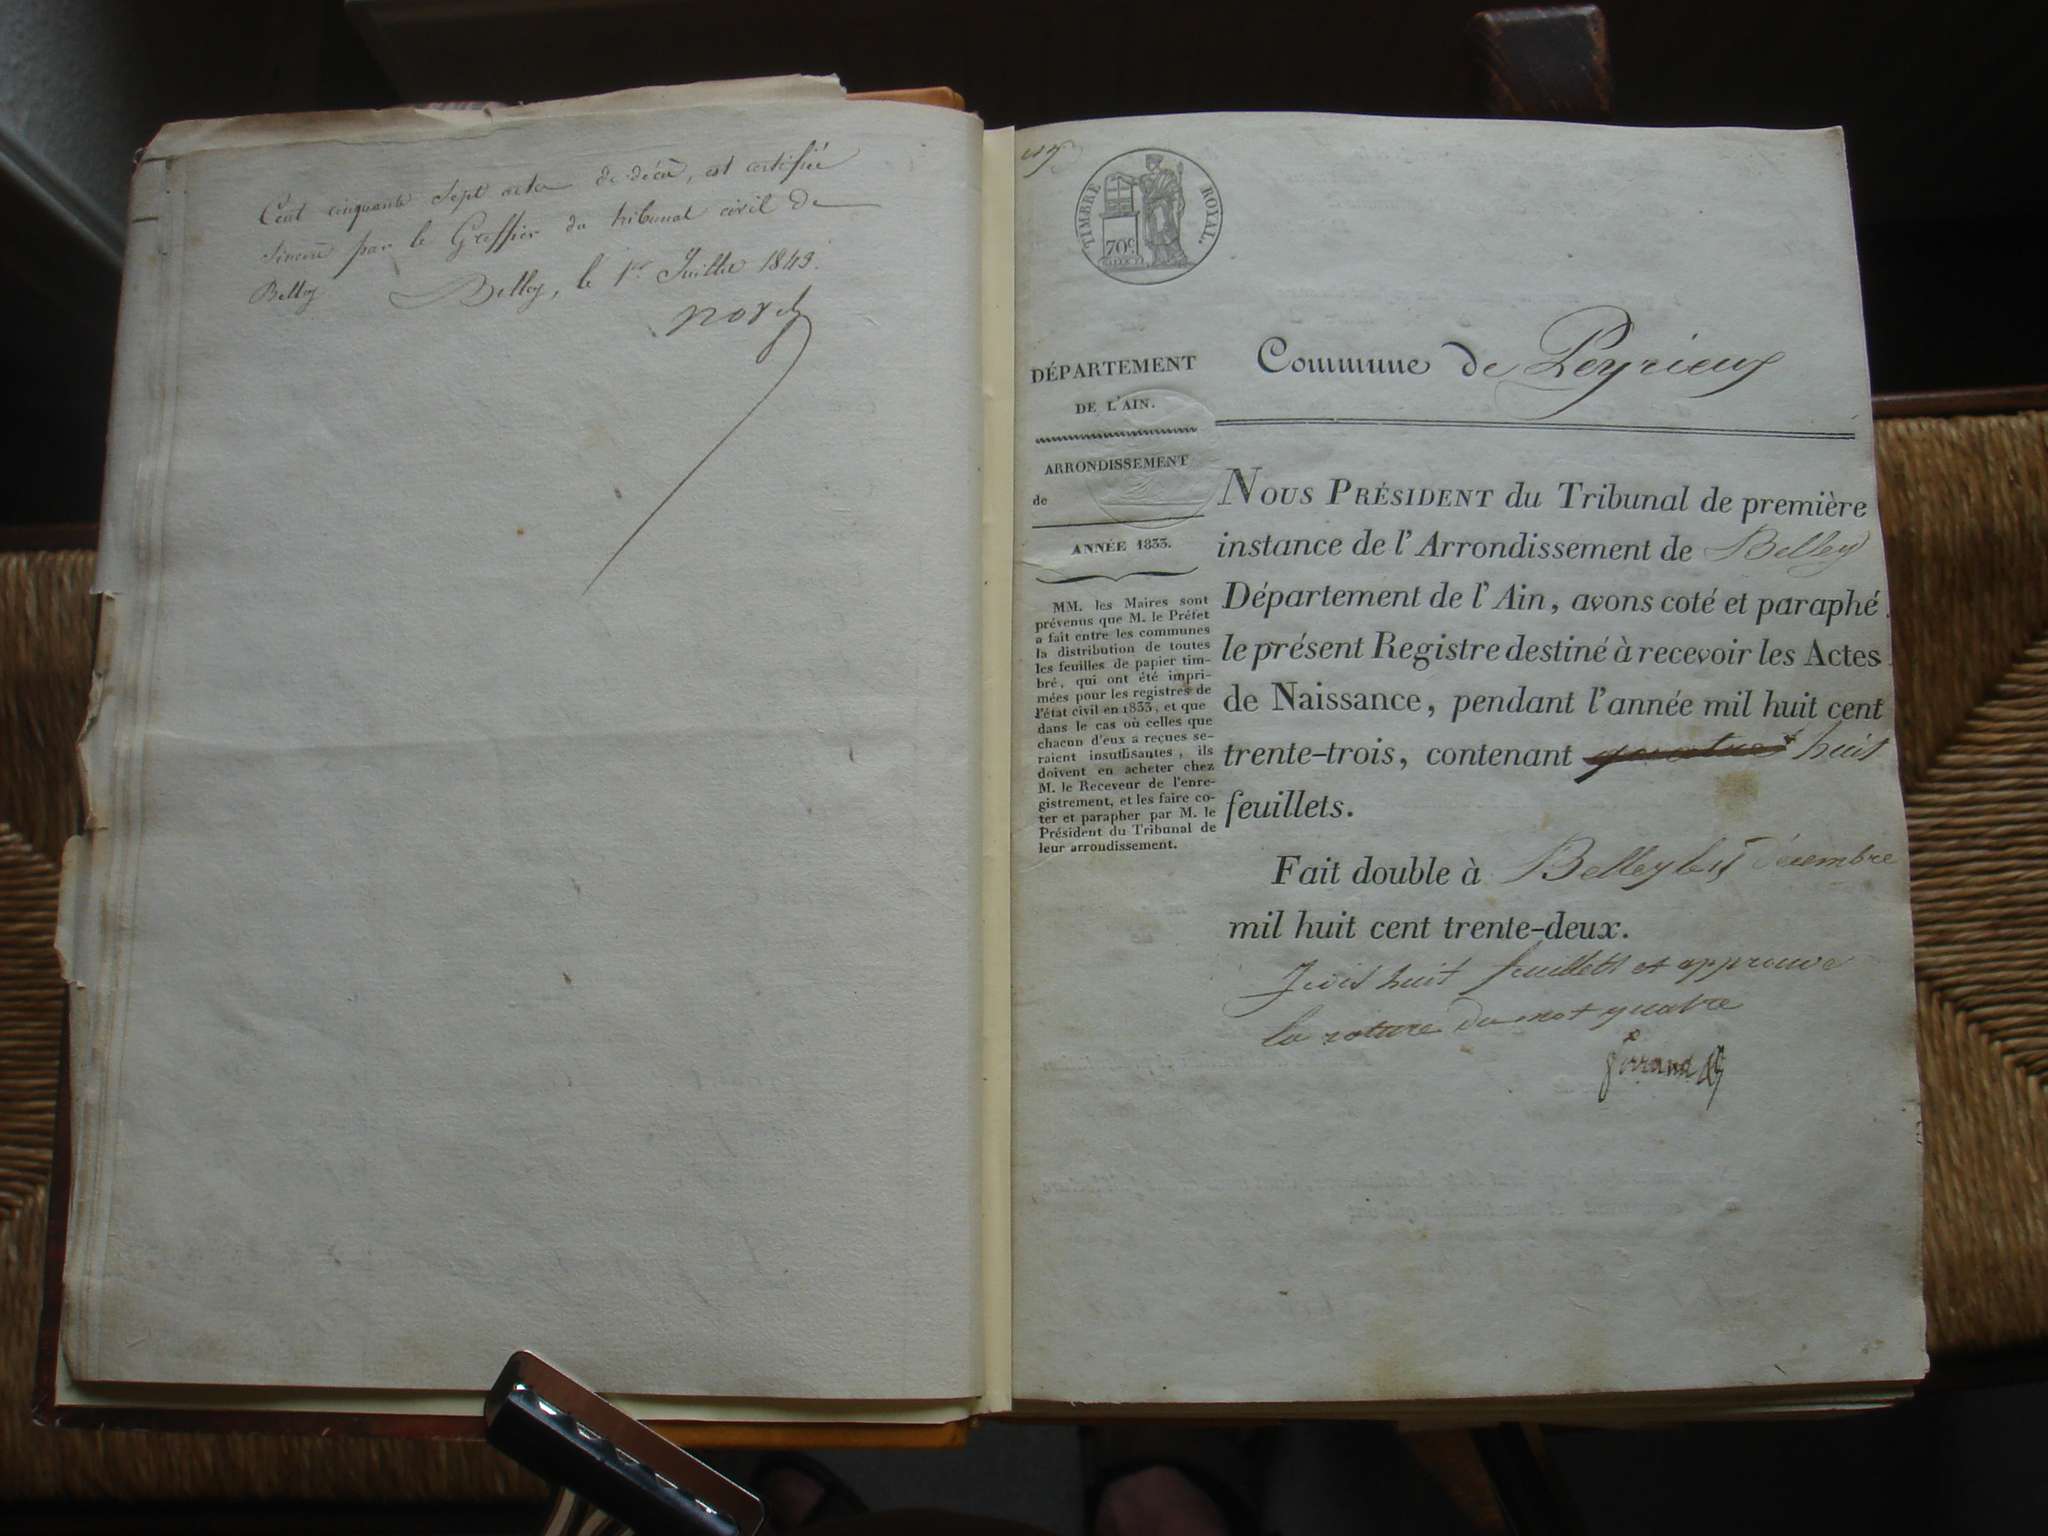 Cent cinquante sept actes de décès, est certifié
sincère par le Greffier du tribunal civil de
Belley
Belley, le 1er Juillet 1843.
TIMBRE ROYAL.
70c
DÉPARTEMENT
DE L'AIN.
ARRONDISSEMENT
de
ANNÉE 1833.
MM. les Maires sont
prévenus que M. le Préfet
a fait entre les communes
la distribution de toutes
les feuilles de papier tim-
bré, qui ont été impri-
mées pour les registres de
l'état civil en 1833, et que
dans le cas où celles que
chacun d'eux a reçues se-
raient insuffisantes, ils
doivent en acheter chez
M. le Receveur de l'enre-
gistrement, et les faire co-
ter et parapher par M. le
Président du Tribunal de
leur arrondissement.
Commune de Peyrieux
NOUS PRÉSIDENT du Tribunal de première
instance de l'Arrondissement de Belley
Département de l'Ain, avons coté et paraphé
le présent Registre destiné à recevoir les Actes
de Naissance, pendant l'année mil huit cent
trente-trois, contenant quatre huit
feuillets.
Fait double à Belley le 15 Décembre
mil huit cent trente-deux.
Je dis huit feuillets et approuve
la rature du mot quatre